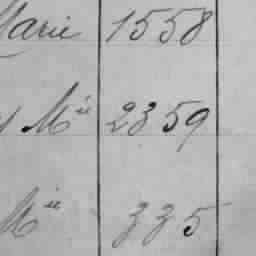 Marie 1558
Mie 2359
Mie 335